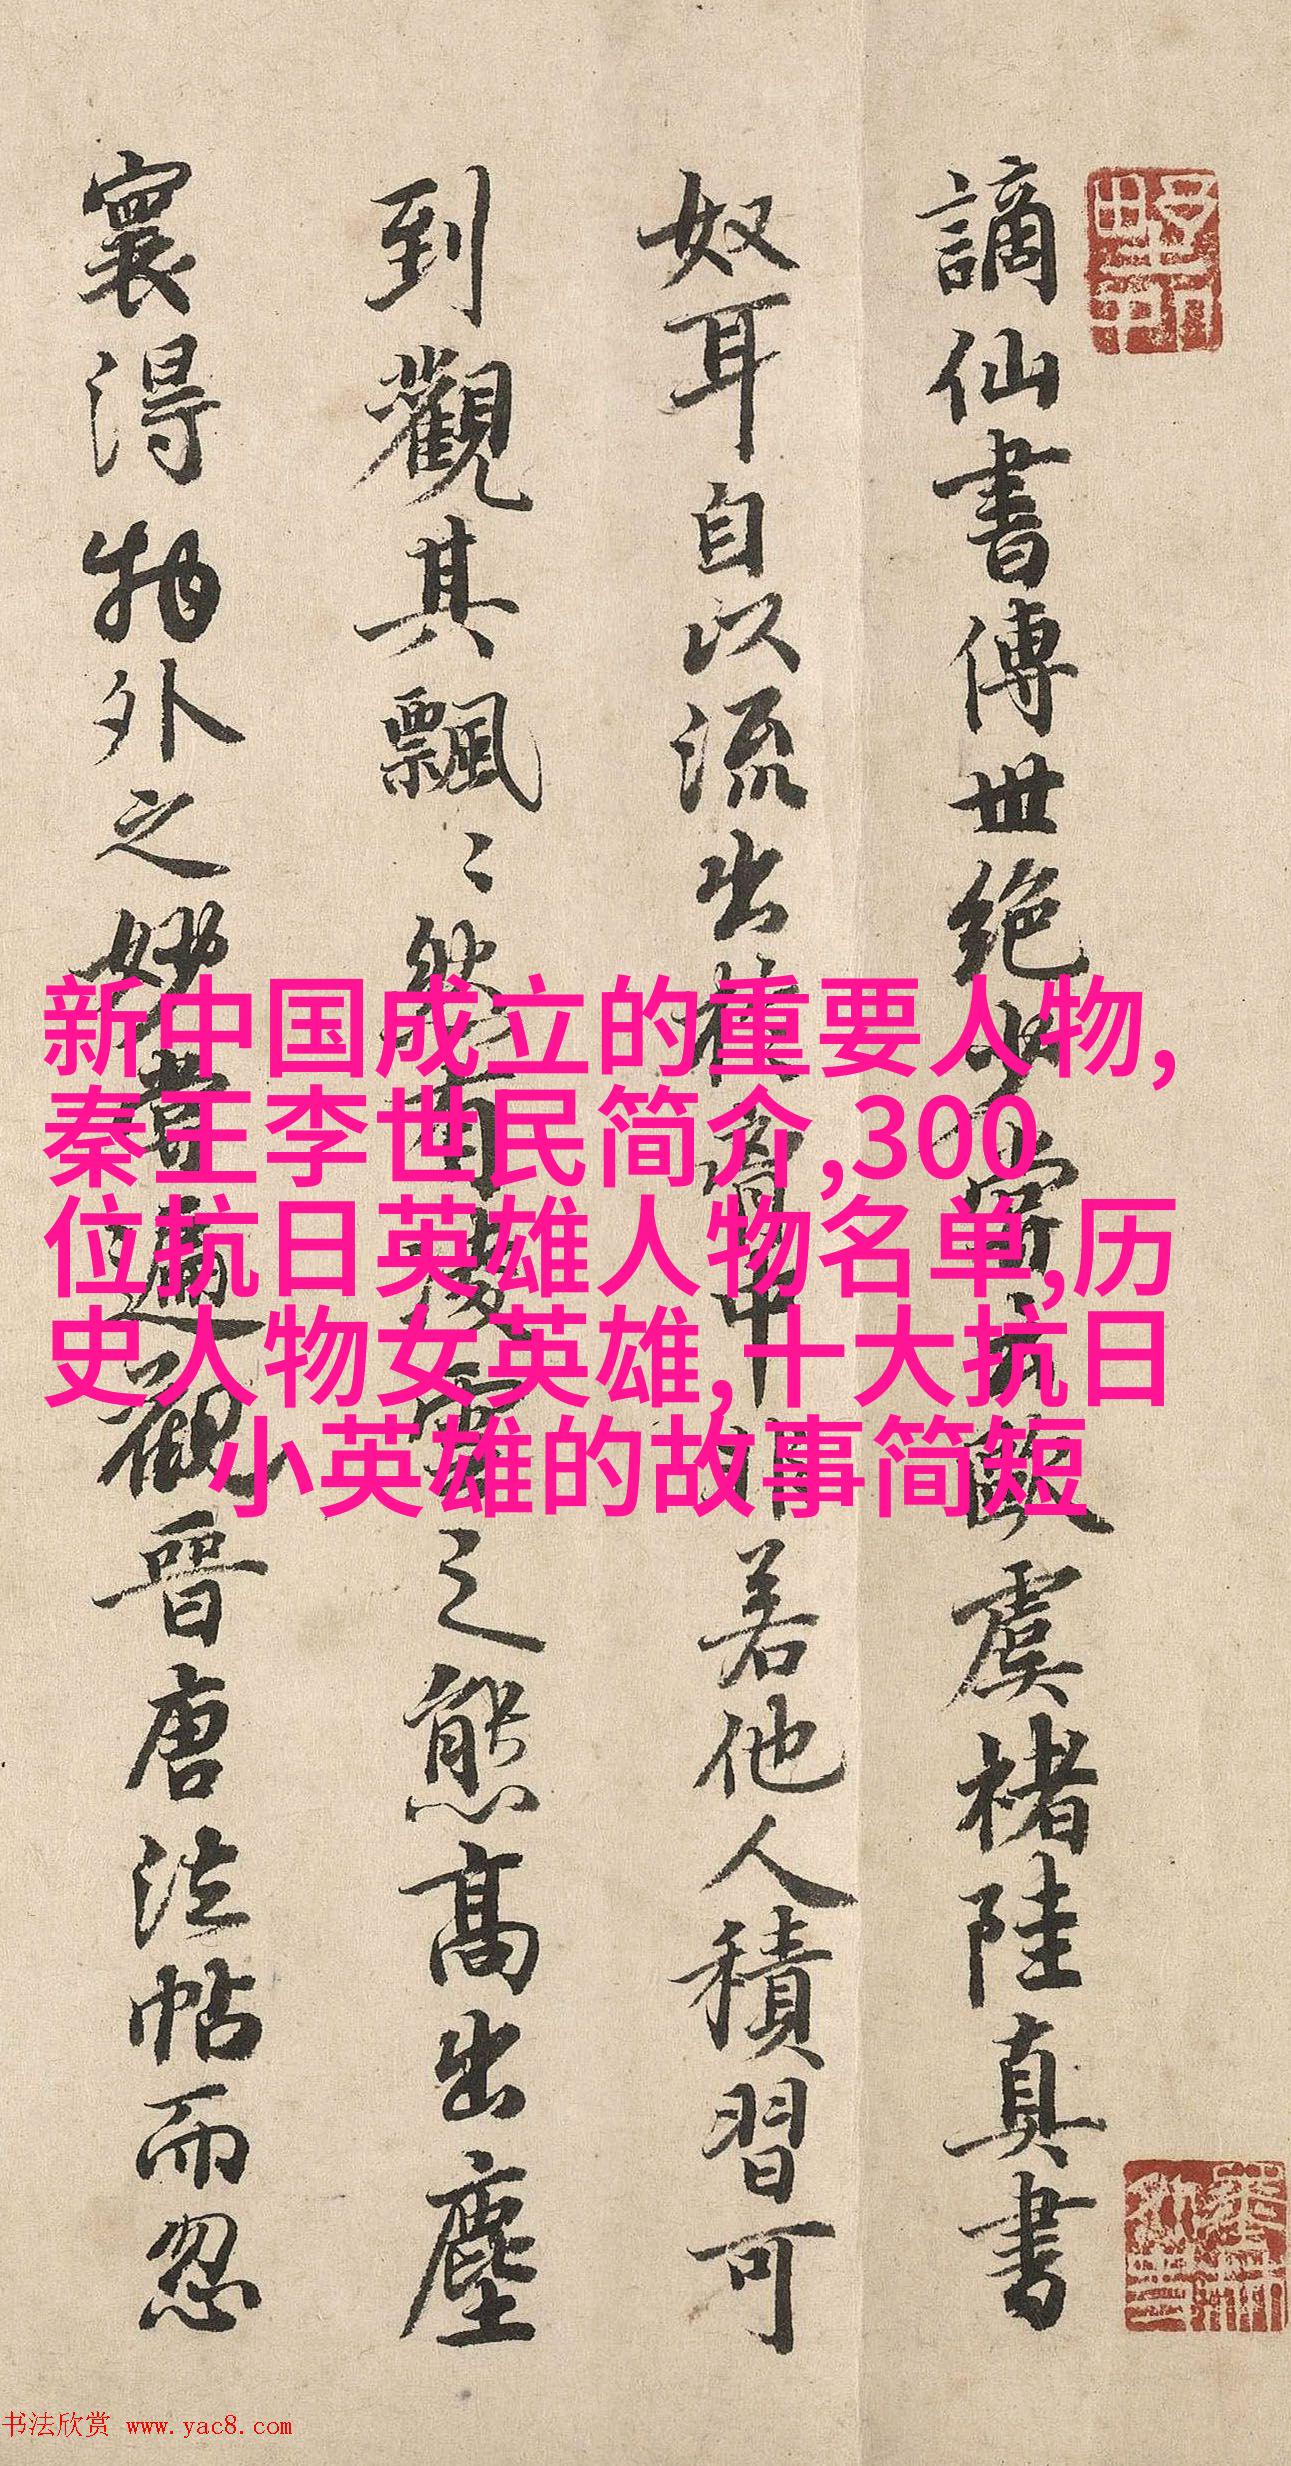 謫仙書傳世絕少嘗云歐虞褚陸真書
奴耳自以流出於胷中非若他人積習可
到觀其飄〻然有凌雲之態高出塵
寰得物外之妙嘗遍觀晉唐法帖而忽
新中国成立的重要人物,
秦王李世民简介,300
位抗日英雄人物名单,历
史人物女英雄,十大抗日
小英雄的故事简短
书法欣赏 www.yac8.com